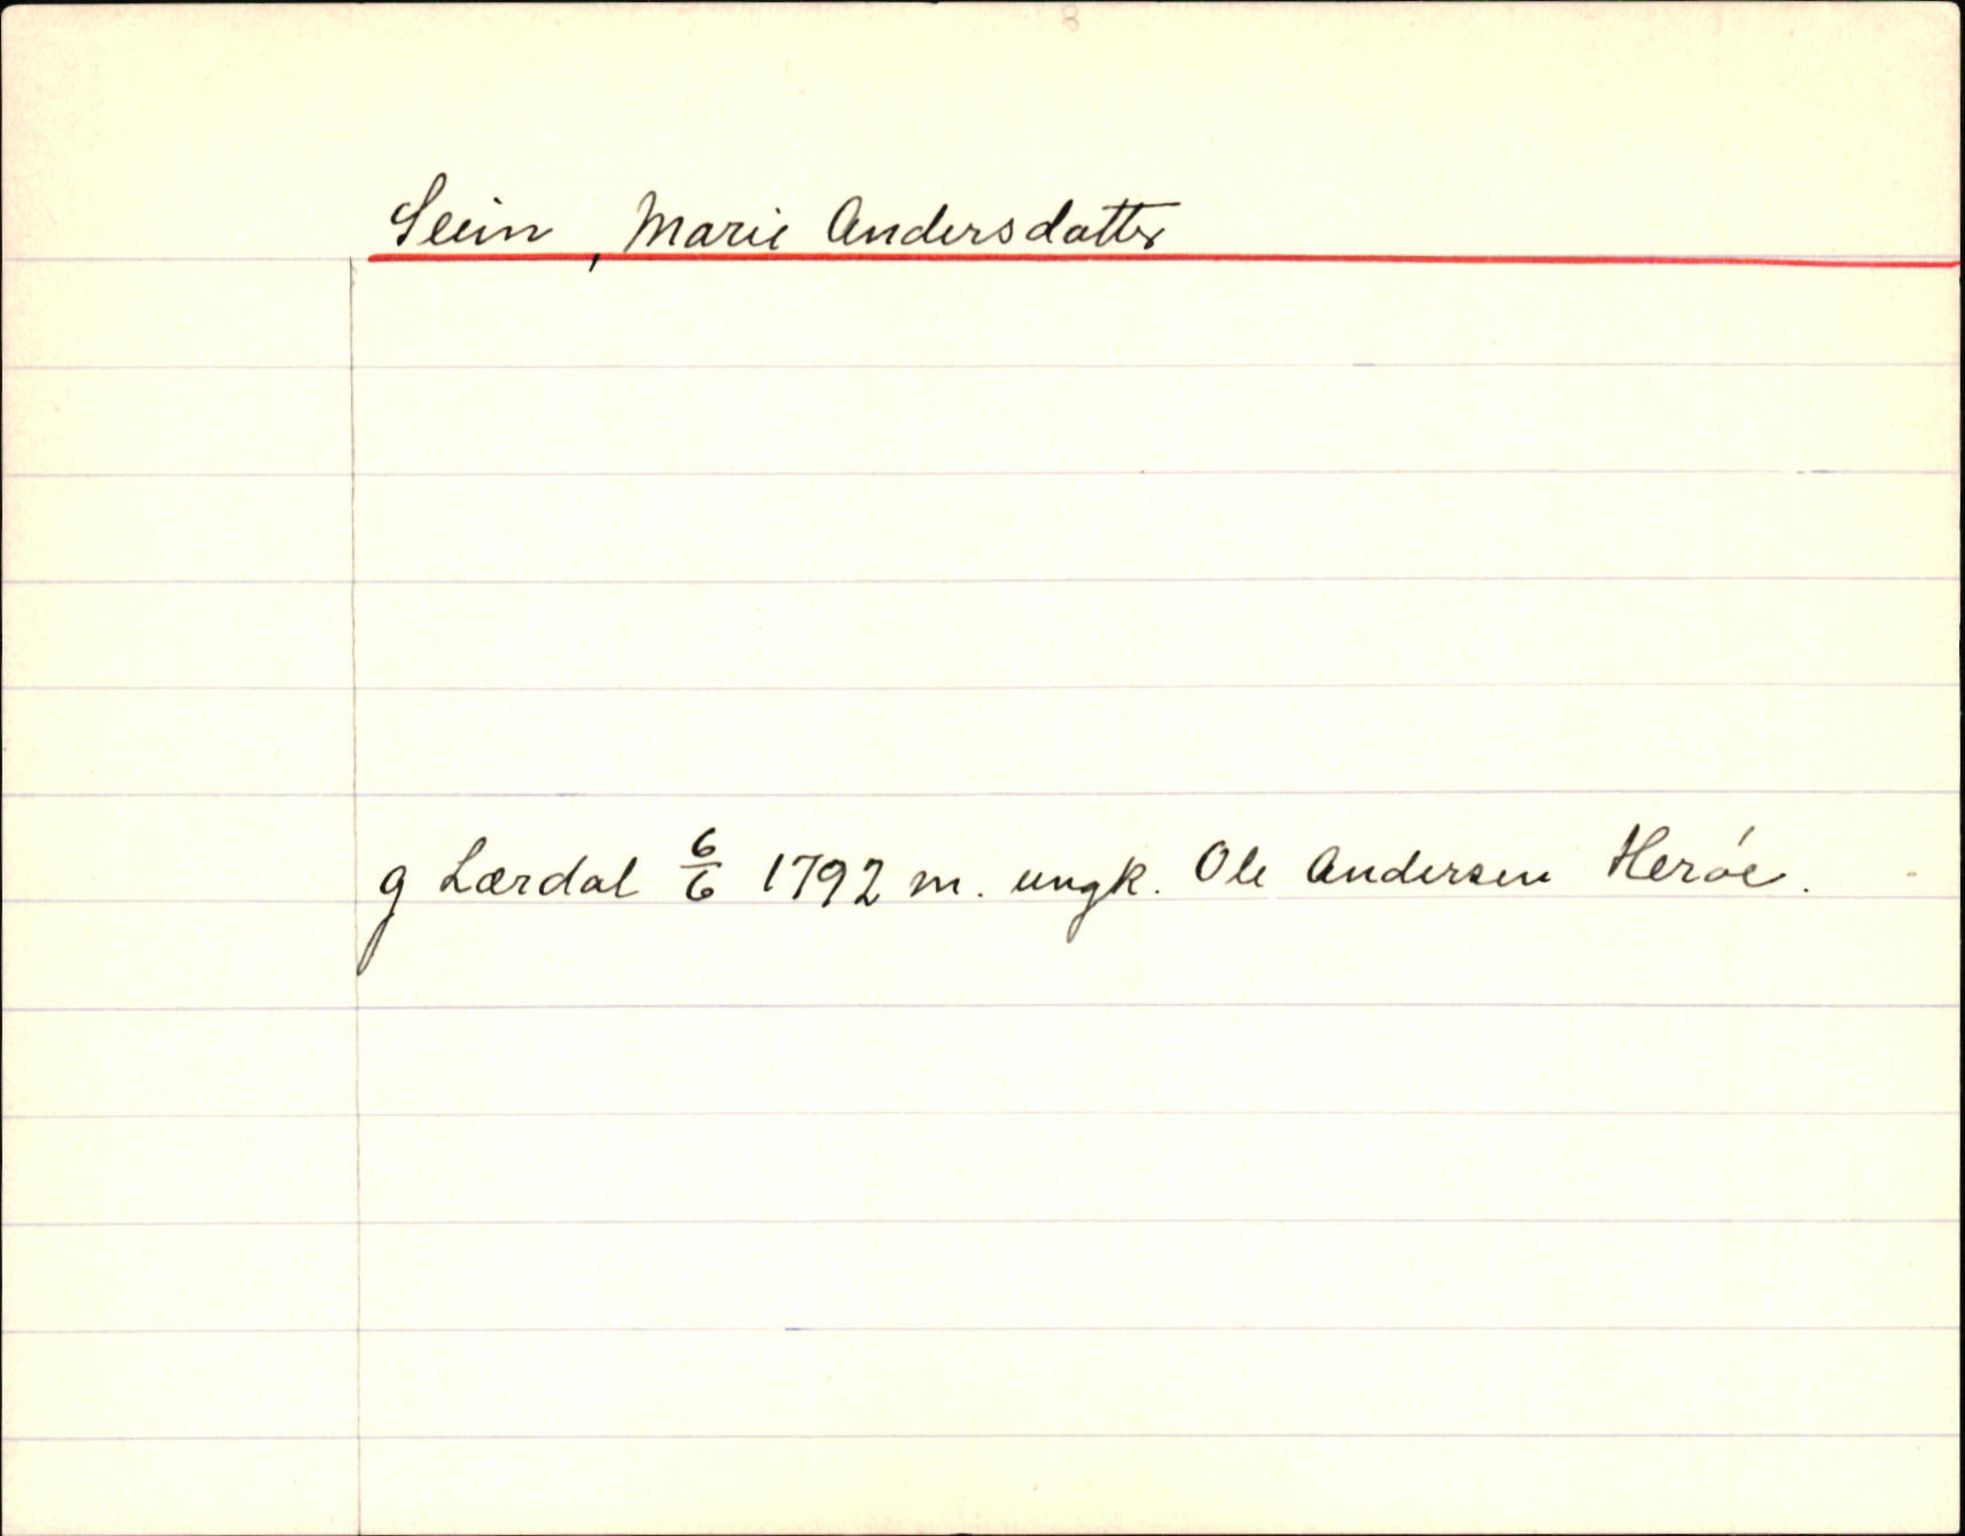 Seim, Marie Andersdatter
g Lærdal 6/6 1792 m. ungk. Ole Andersen Herøe.